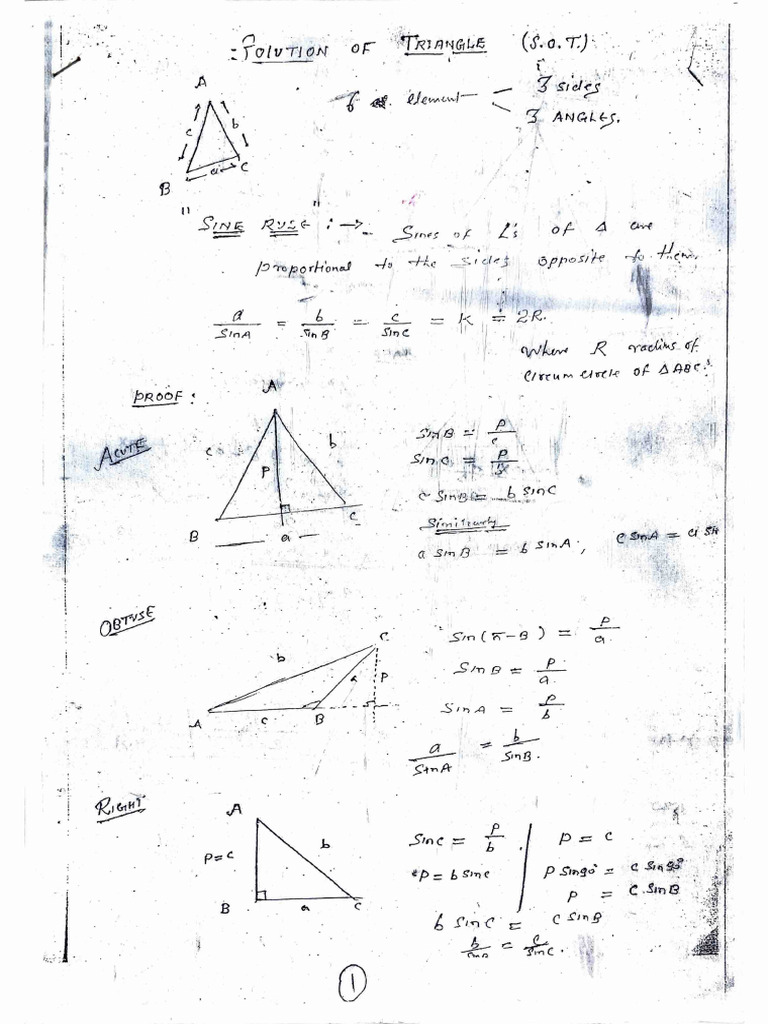 :- SOLUTION OF TRIANGLE (S.O.T.)
6 element — 3 sides
3 ANGLES.
A
c b
B a C
"SINE RULE" : → Sines of L's of Δ are
proportional to the sides opposite to them.
a/sinA = b/sinB = c/sinC = K = 2R.
Where R radius of
circumcircle of ΔABC.
PROOF :
ACUTE
A
c b
P
B a C
sinB = P/c
sinC = P/b
c sinB = b sinC
Similarly
a sinB = b sinA, c sinA = a si
OBTUSE
C
b a P
A c B
sin(π-B) = P/a
sinB = P/a.
sinA = P/b
a/sinA = b/sinB.
RIGHT
A
P=c b
B a C
sinC = P/b
P = b sinC
P = c
P sin90° = c sin90°
P = c sinB
b sinC = c sinB
b/sinB = c/sinC.
1